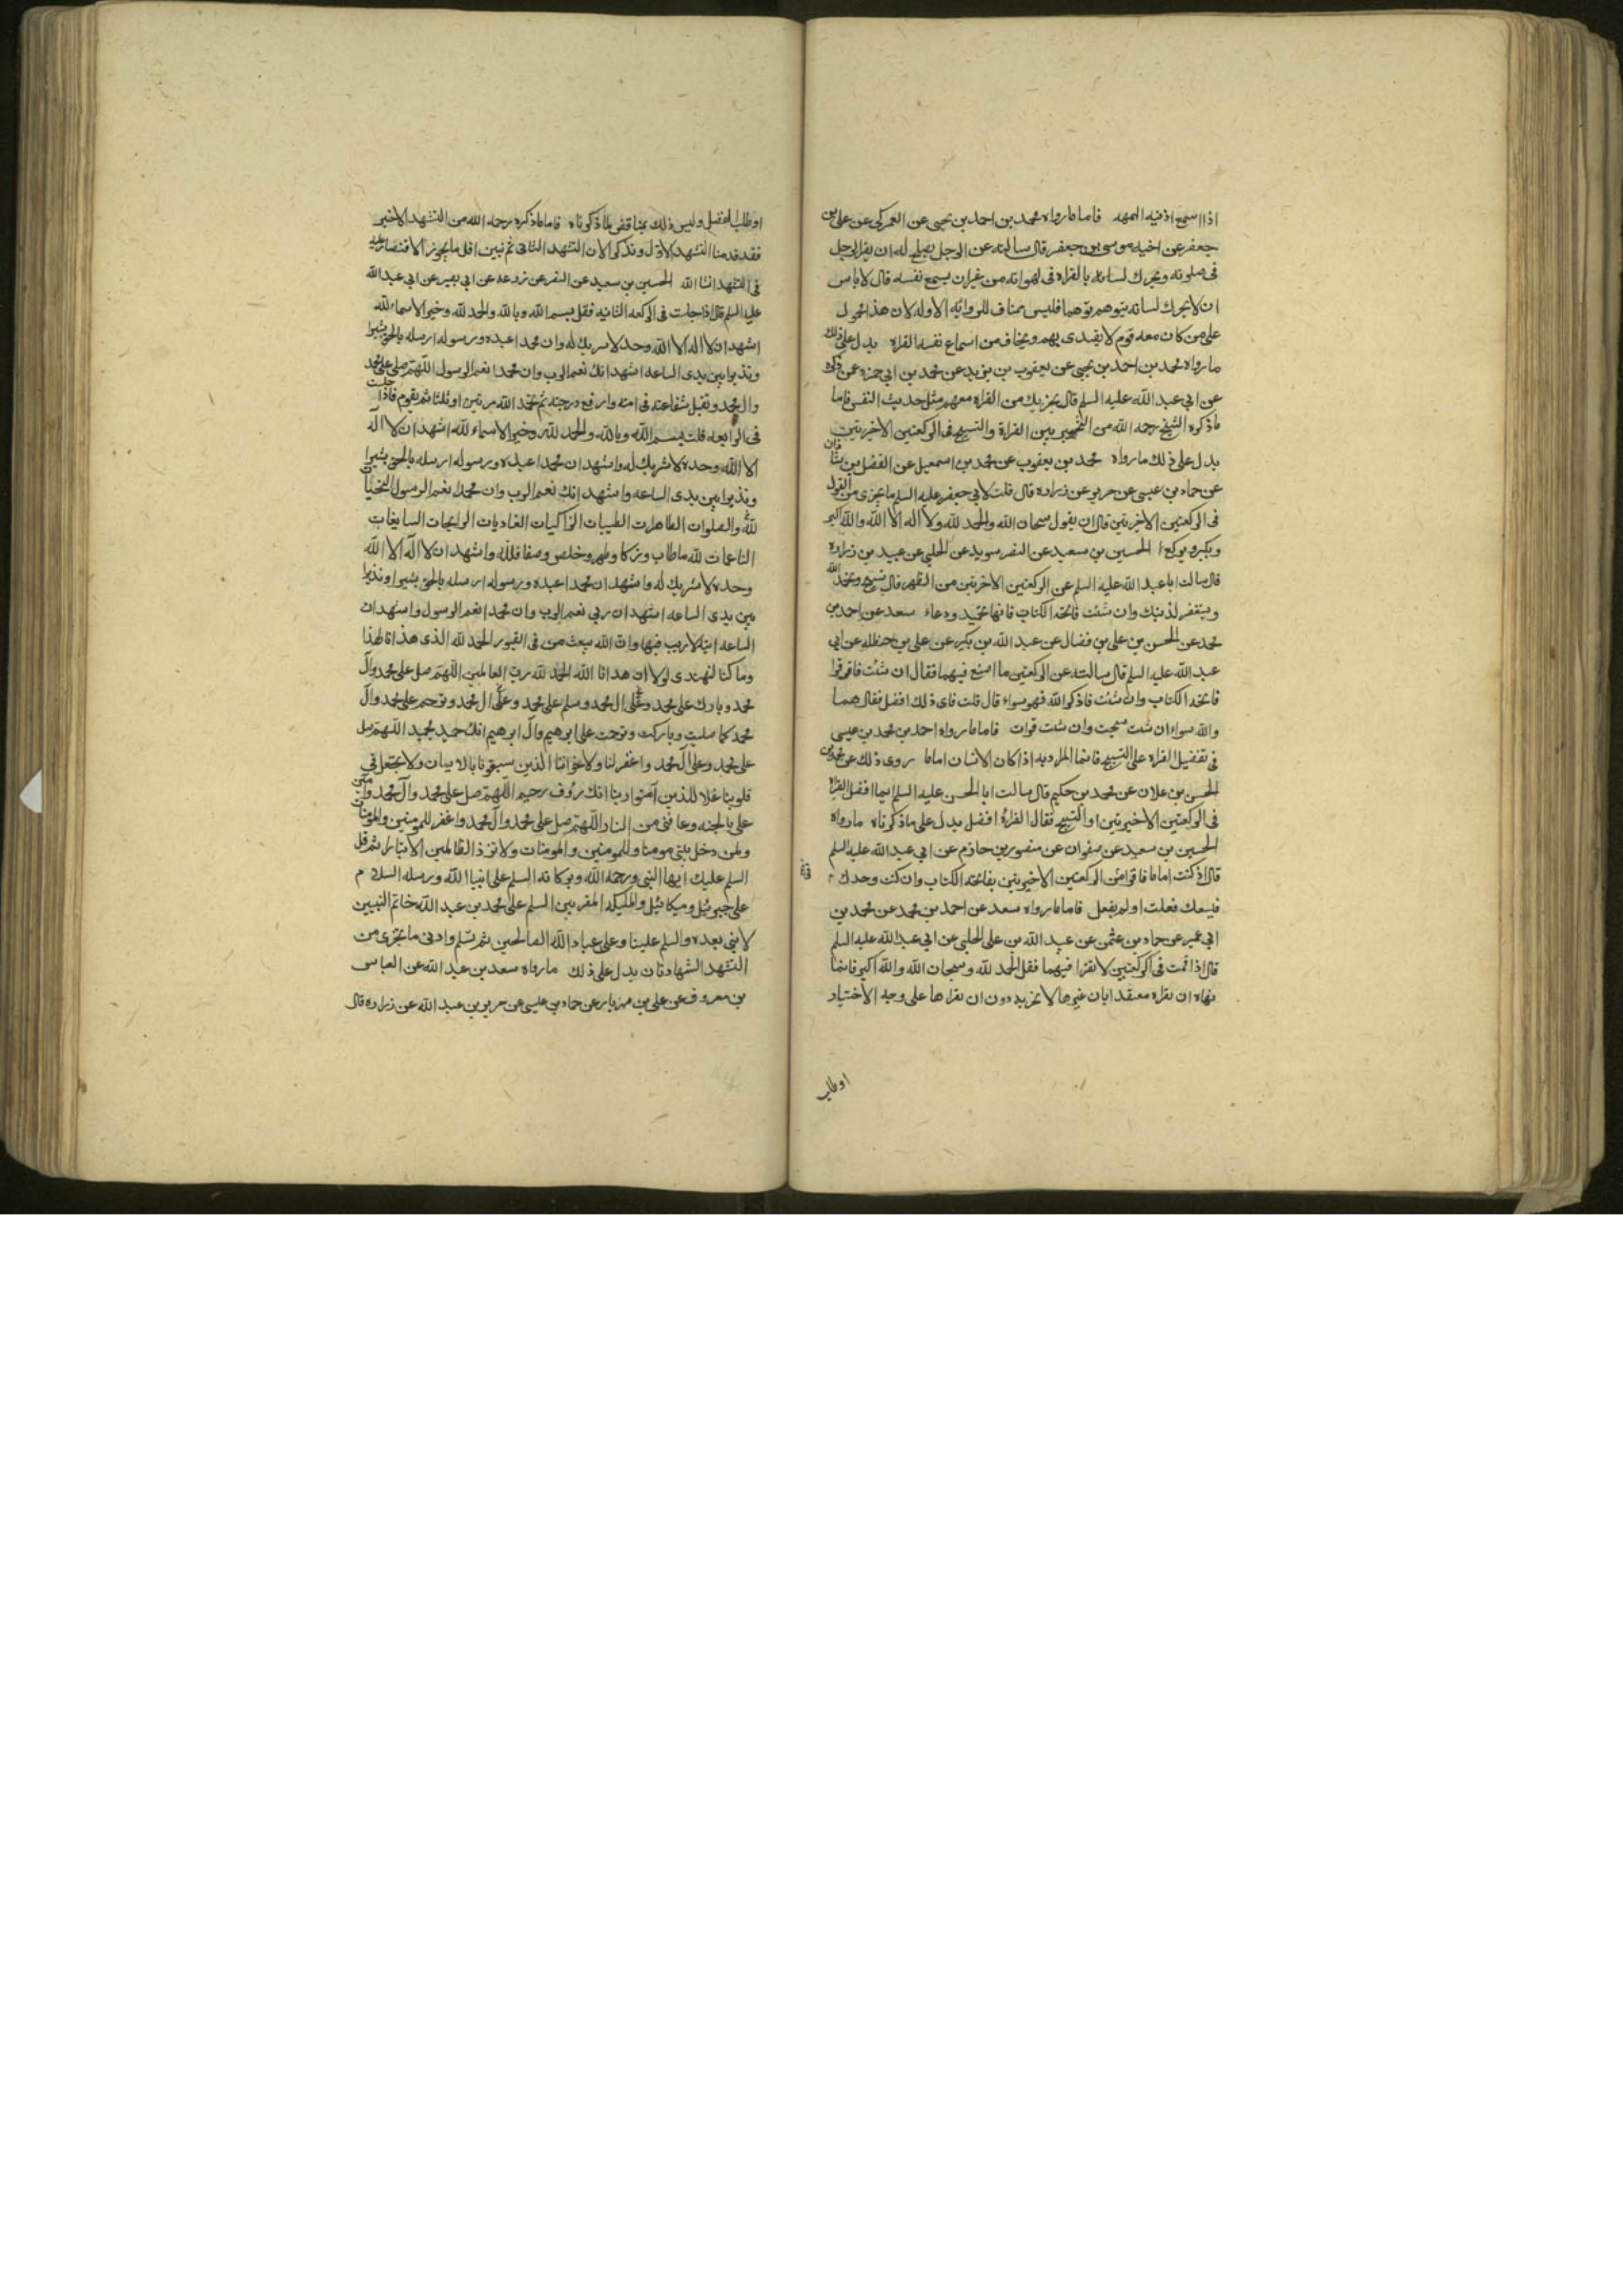 اذا اسمع اذنيه الهمهمه فاما ما رواه محمد بن احمد بن يحيى عن العمركى عن على بن
جعفر عن اخيه موسى بن جعفر قال سالته عن الرجل يصلح له ان يقرا الرجل
فى صلوته ويحرك لسانه بالقراه فى لهواته من غير ان يسمع نفسه قال لا باس
ان لا يحرك لسانه يتوهم توهما فليس بمناف للروايه الاوله لان هذا محمول
على من كان معه قوم لا يقتدى بهم ويخاف من اسماع نفسه القراه يدل على ذلك
ما رواه محمد بن احمد بن يحيى عن يعقوب بن يزيد عن محمد بن ابى حمزه عمن ذكره
عن ابى عبد الله عليه السلم قال يجزيك من القراه معهم مثل حديث النفس فاما
ما ذكره الشيخ رحمه الله من التخيير بين القراة والتسبيح فى الركعتين الاخريتين
يدل على ذلك ما رواه محمد بن يعقوب عن محمد بن اسمعيل عن الفضل بن شاذان
عن حماد بن عيسى عن حريز عن زراره قال قلت لابى جعفر عليه السلم ما يجزى من القول
فى الركعتين الاخريتين قال ان يقول سبحان الله والحمد لله ولا اله الا الله والله اكبر
ويكبر ويركع الحسين بن سعيد عن النضر سويد عن الحلبى عن عبيد بن زراره
قال سالت ابا عبد الله عليه السلم عن الركعتين الاخريتين من الظهر قال تسبح وتحمد الله
وتستغفر لذنبك وان شئت فاتحه الكتاب فانها تحميد ودعاء سعد عن احمد بن
محمد عن الحسن بن على بن فضال عن عبد الله بن بكير عن على بن حنظله عن ابى
عبد الله عليه السلم قال سالته عن الركعتين ما اصنع فيهما فقال ان شئت فاقرا
فاتحه الكتاب وان شئت فاذكر الله فهو سواء قال قلت فاى ذلك افضل فقال هما
والله سواء ان شئت سبحت وان شئت قرات فاما ما رواه احمد بن محمد بن عيسى
فى تفضيل القراه على التسبيح فانما المراد به اذا كان الانسان اماما روى ذلك عن محمد بن
الحسن بن علان عن محمد بن حكيم قال سالت ابا الحسن عليه السلم ايما افضل القراه
فى الركعتين الاخيرتين او التسبيح فقال القراة افضل يدل على ما ذكرناه ما رواه
الحسين بن سعيد عن صفوان عن منصور بن حازم عن ابى عبد الله عليه السلم
قال اذ كنت اماما فاقرا فى الركعتين الاخيرتين بفاتحه الكتاب وان كنت وحدك
فيسعك فعلت او لم تفعل فاما ما رواه سعد عن احمد بن محمد عن محمد بن
ابى عمير عن حماد بن عثمن عن عبيد الله بن على الحلبى عن ابى عبد الله عليه السلم
قال اذا قمت فى الركعتين لا تقرا فيهما فقل الحمد لله وسبحان الله والله اكبر فانما
نهاه ان يقراه معتقدا بان غيرها لا تجزيه دون ان يقراها على وجه الاختيار
او طلب
او طلب الفضل وليس ذلك بمناقض لما ذكرناه فاما ما ذكره رحمه الله من التشهد الاخير
فقد قدمنا التشهد الاول ونذكر الان التشهد الثانى ثم نبين اقل ما يجوز الاقتصار عليه
فى التشهد انشا الله الحسين بن سعيد عن النضر عن زرعه عن ابى بصير عن ابى عبد الله
عليه السلم قال اذا جلست فى الركعه الثانيه فقل بسم الله وبالله والحمد لله وخير الاسماء لله
اشهد ان لا اله الا الله وحده لا شريك له وان محمدا عبده ورسوله ارسله بالحق بشيرا
ونذيرا بين يدى الساعه اشهد انك نعم الرب وان محمدا نعم الرسول اللهم صل على محمد
وال محمد وتقبل شفاعته فى امته وارفع درجته ثم تحمد الله مرتين او ثلثا ثم تقوم فاذا جلست
فى الرابعه قلت بسم الله وبالله والحمد لله وخير الاسماء لله اشهد ان لا اله
الا الله وحده لا شريك له واشهد ان محمدا عبده ورسوله ارسله بالحق بشيرا
ونذيرا بين يدى الساعه واشهد انك نعم الرب وان محمدا نعم الرسول التحيات
لله والصلوات الطاهرات الطيبات الزاكيات الغاديات الرايحات السابغات
الناعمات لله ما طاب وزكا وطهر وخلص وصفا فلله واشهد ان لا اله الا الله
وحده لا شريك له واشهد ان محمدا عبده ورسوله ارسله بالحق بشيرا ونذيرا
بين يدى الساعه اشهد ان ربى نعم الرب وان محمدا نعم الرسول واشهد ان
الساعه اتيه لا ريب فيها وان الله يبعث من فى القبور الحمد لله الذى هدانا لهذا
وما كنا لنهتدى لولا ان هدانا الله الحمد لله رب العالمين اللهم صل على محمد وآل
محمد وبارك على محمد وعلى ال محمد وسلم على محمد وعلى ال محمد وترحم على محمد وال
محمد كما صليت وباركت وترحمت على ابرهيم وآل ابرهيم انك حميد مجيد اللهم صل
على محمد وعلى آل محمد واغفر لنا ولاخواننا الذين سبقونا بالايمان ولا تجعل فى
قلوبنا غلا للذين آمنوا ربنا انك رؤف رحيم اللهم صل على محمد وآل محمد وامنن
على بالجنه وعافنى من النار اللهم صل على محمد وآل محمد واغفر للمومنين والمومنات
ولمن دخل بيتى مومنا وللمومنين والمومنات ولا تزد الظالمين الا تبارا ثم قل
السلم عليك ايها النبى ورحمه الله وبركاته السلم على انبيا الله ورسله السلام
على جبرئيل وميكائيل والمليكه المقربين السلم على محمد بن عبد الله خاتم النبيين
لا نبى بعده والسلم علينا وعلى عباد الله الصالحين ثم تسلم وادنى ما يجزى من
التشهد الشهادتان يدل على ذلك ما رواه سعد بن عبد الله عن العباس
بن معروف عن على بن مهزيار عن حماد بن عيسى عن حريز بن عبد الله عن زراره قال